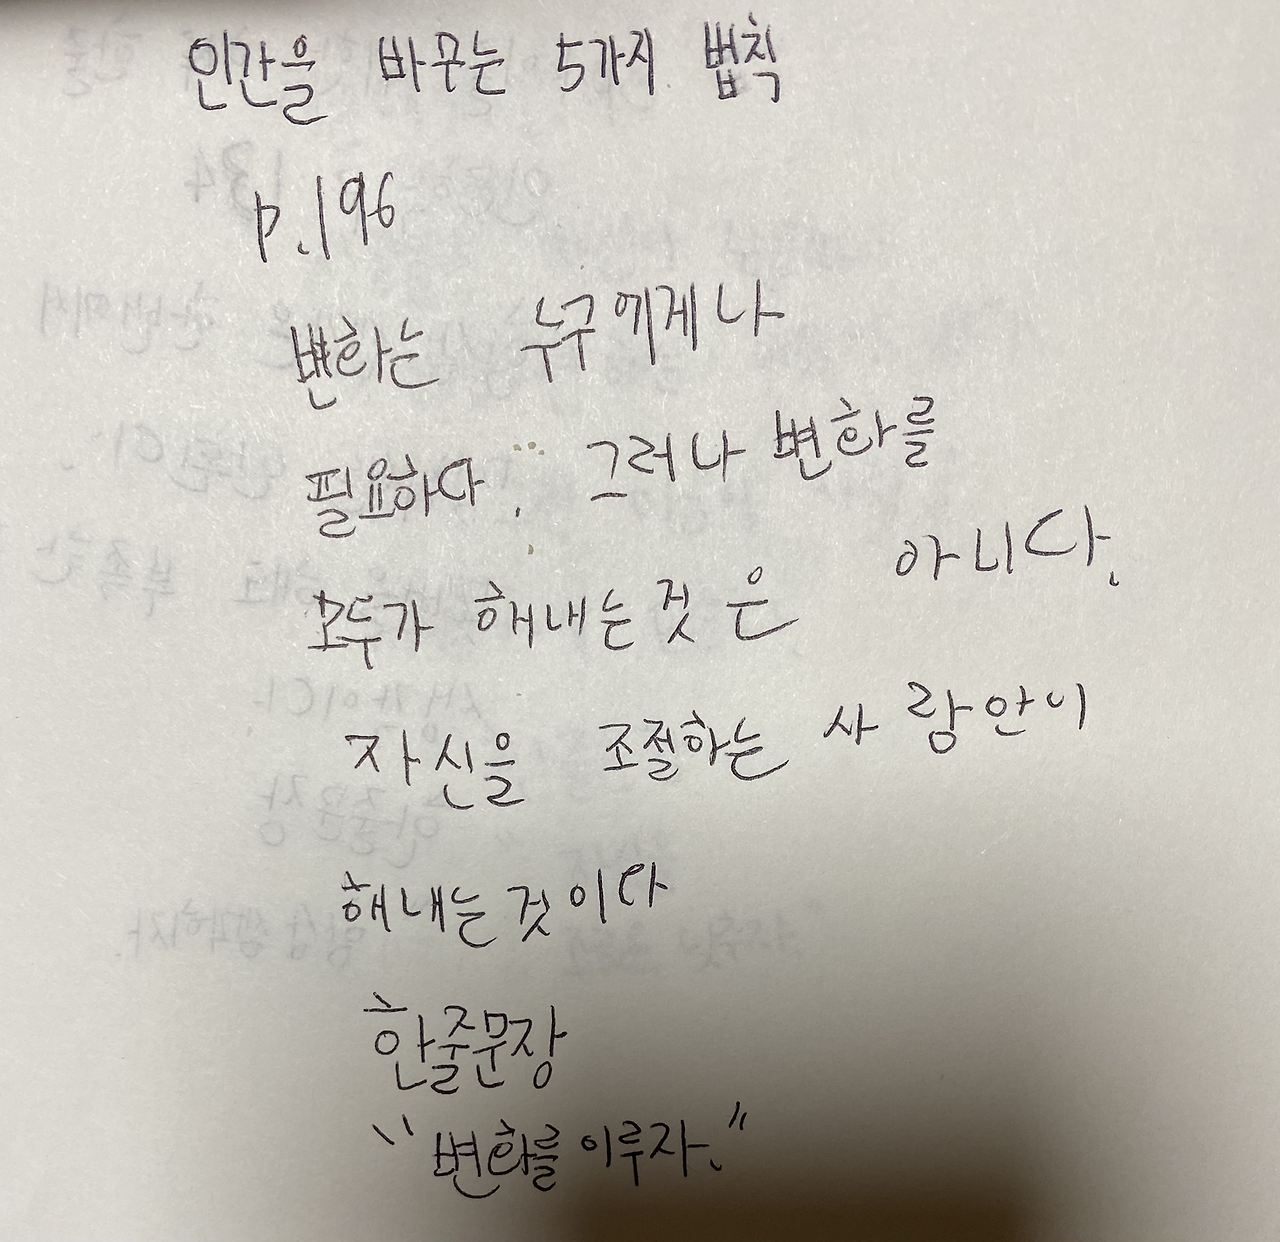 인간을 바꾸는 5가지 법칙
p.196
변하는 누구에게나
필요하다. 그러나 변화를
모두가 해내는것은 아니다.
자신을 조절하는 사람안이
해내는것이다
한줄문장
"변화를이루자."